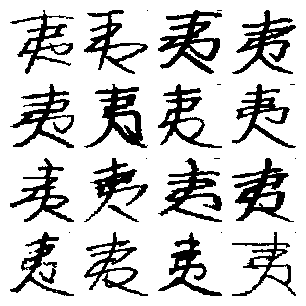 夷夷夷夷
夷夷夷夷
夷夷夷夷
夷夷夷夷